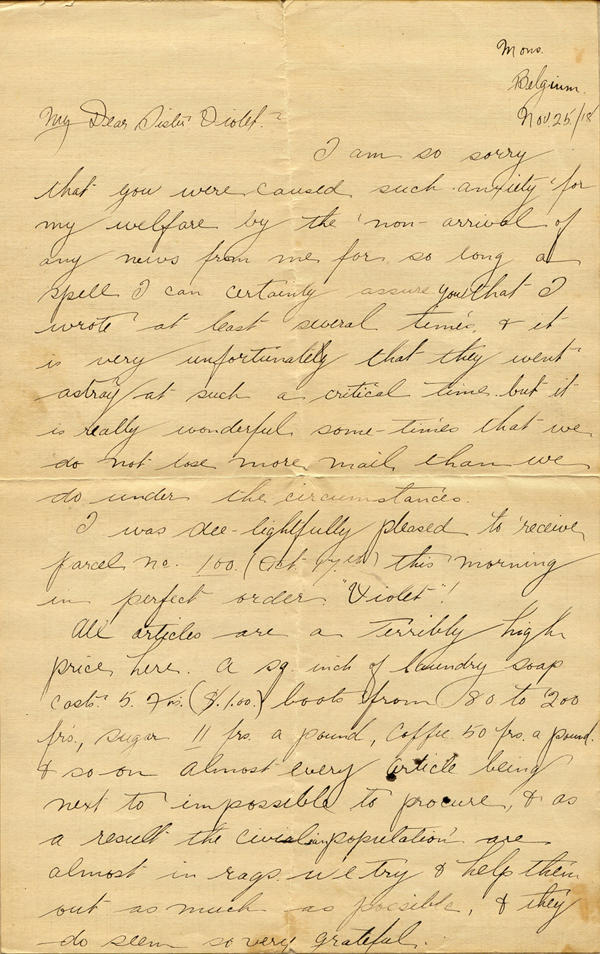 Mons.
Belgium.
Nov. 25/18
My Dear Sister Violet. -
I am so sorry
that you were caused such anxiety for
my welfare by the non-arrival of
any news from me for so long a
spell I can certainly assure you that I
wrote at least several times, & it
is very unfortunately that they went
astray at such a critical time but it
is really wonderful some-times that we
do not lose more mail than we
do under the circumstances.
I was dee-lightfully pleased to receive
parcel no. 100. (Oct. ) this morning
in perfect order "Violet"!
All articles are a terribly high
price here. A sq. inch of laundry soap
costs 5. Frs. ($.1.00.) boots from 80 to 200
frs., sugar 11 frs. a pound, Coffee 50 frs. a pound.
& so on almost every article being
next to impossible to procure, & as
a result the civilian population are
almost in rags. we try & help them
out as much as possible, & they
do seem so very grateful.